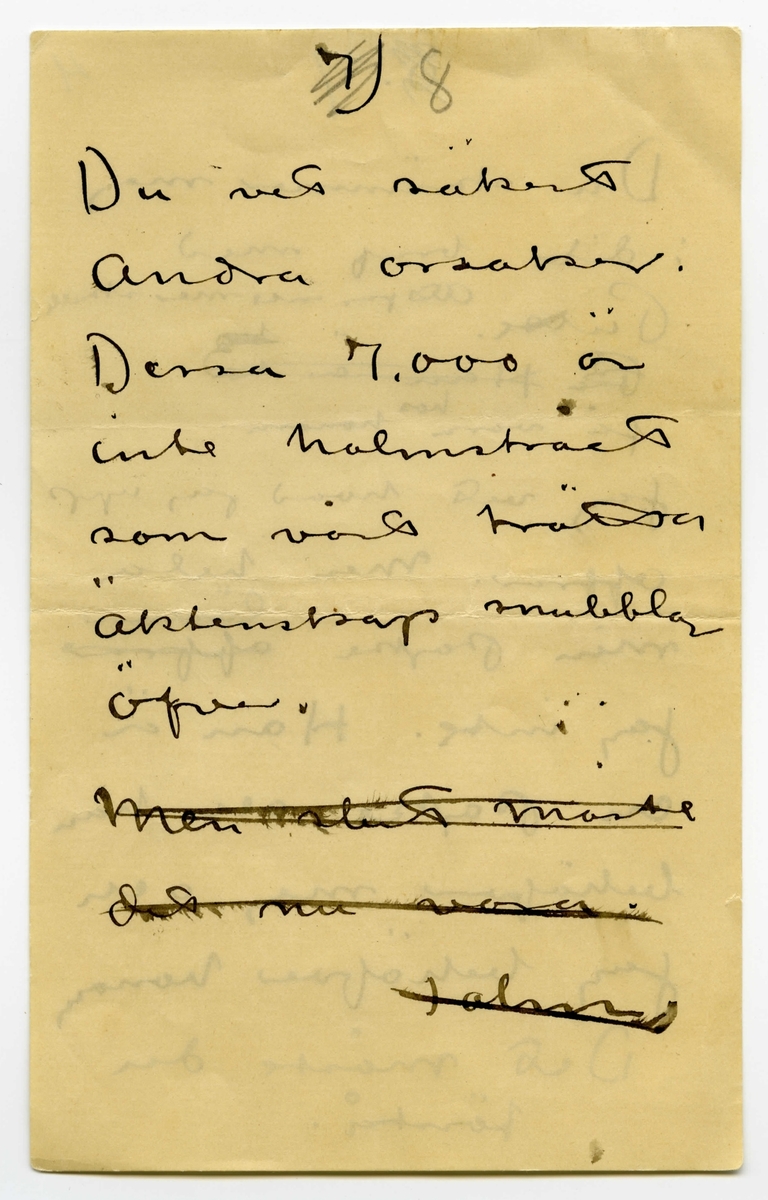 7) 8
Du vet säkert
andra orsaker.
Dessa 7.000 är
inte halmstrået
som vårt trötta
äktenskap snubblar
öfver.
Men slut måste
det nu vara.